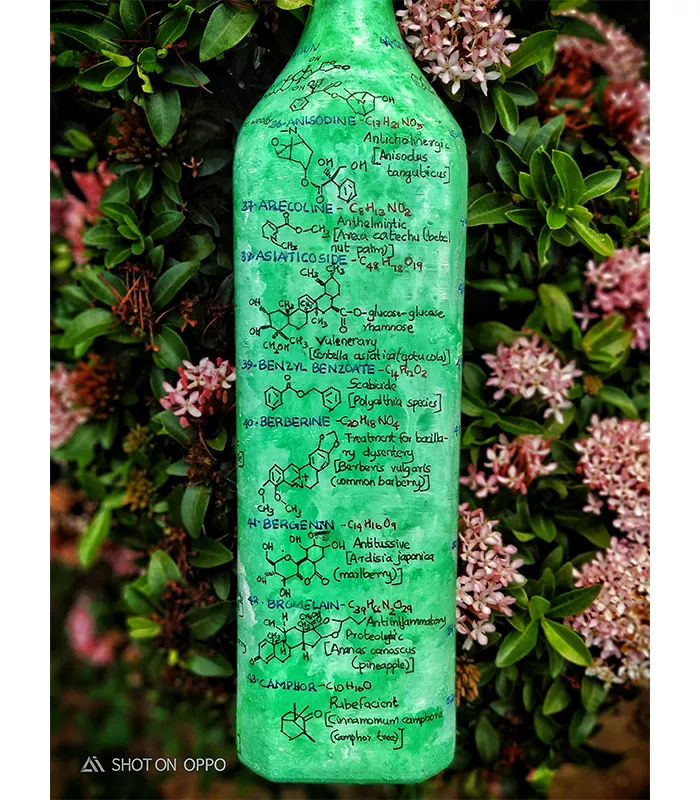 OH
36·ANISODINE - C17H21NO5
Anticholinergic
[Anisodus
tanguticus]
N
O
OH
OH
O
O
37·ARECOLINE - C8H13NO2
Anthelmintic
[Areca catechu (betel
nut palm)]
O
O-CH3
N
CH3
38·ASIATICOSIDE - C48H78O19
CH3
CH3
OH
CH3
CH3
CH3
C-O-glucose-glucose
O
rhamnose
OH
CH2OH
CH3
Vulenerary
[Centella asiatica (gotu cola)]
39·BENZYL BENZOATE - C14H12O2
Scabicide
[Polyalthia species]
O
O
40·BERBERINE - C20H18NO4
Treatment for bacilla-
ry dysentery
[Berberis vulgaris
(common barberry)]
O
O
N+
O
O
CH3
CH3
41·BERGENIN - C14H16O9
Antitussive
[Ardisia japonica
(marlberry)]
OH
OH
OH
O
O
OH
O
OH
42·BROMELAIN - C39H66N2O29
Antiinflammatory
Proteolytic
[Ananas comosus
(pineapple)]
OH
O
H
H
O
43·CAMPHOR - C10H16O
Rubefacient
[Cinnamomum camphora
(camphor tree)]
O
SHOT ON OPPO